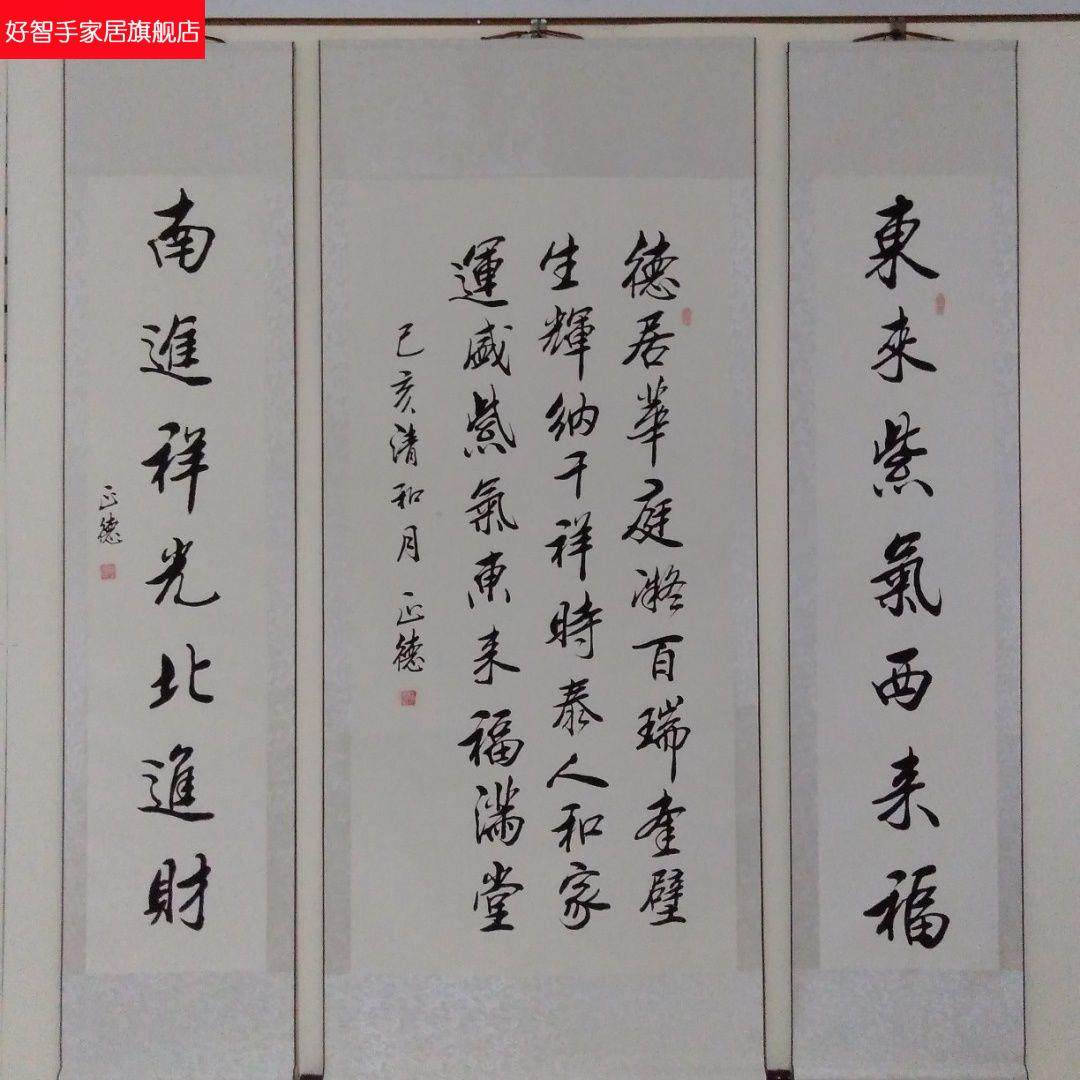 好智手家居旗舰店
東來紫氣西来福
德居華庭凝百瑞奎壁
生輝納千祥時泰人和家
運盛紫氣東来福滿堂
己亥清和月 正德
南進祥光北進財
正德